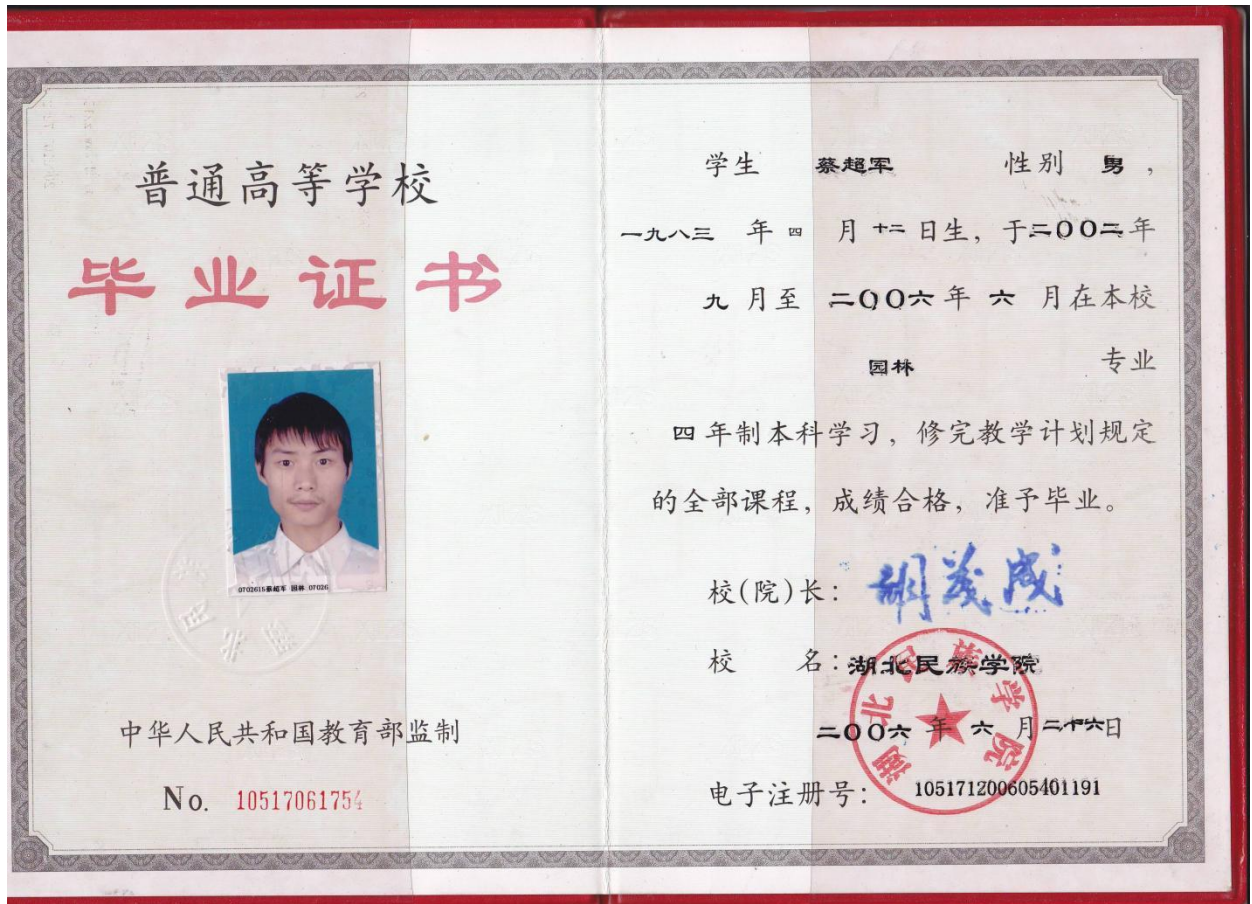 普通高等学校
毕业证书
0702615蔡超军 园林 07026
中华人民共和国教育部监制
No. 10517061754
学生 蔡超军 性别 男，
一九八三 年 四 月 十二 日生，于二00二年
九 月至 二00六 年 六 月在本校
园林 专业
四 年制本科学习，修完教学计划规定
的全部课程，成绩合格，准予毕业。
校(院)长：胡茂成
校 名：湖北民族学院
二00六 年 六 月二十六日
电子注册号：105171200605401191
湖北民族学院